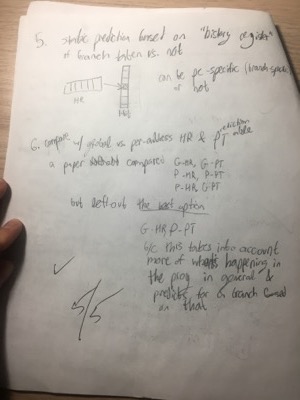 5. static prediction based on "history register"
of branch taken vs. not
can be pc-specific (branch specific)
or not
HR
6. compare w/ global vs per-address HR & PT prediction table
a paper without compared G-HR, G-PT
P-HR, P-PT
P-HR, G-PT
but left out the best option
G-HR P-PT
b/c this takes into account
more of what's happening in
the prog in general &
predicts for a branch based
on that
5/5